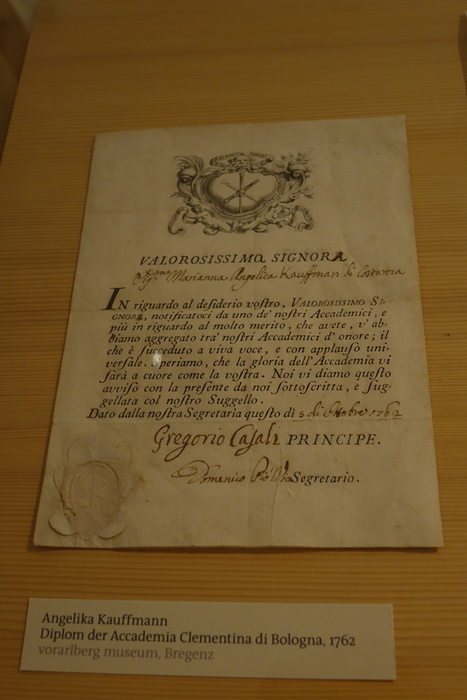 VALOROSISSIMO SIGNORA
Marianna Angelica Kauffman di
IN riguardo al desiderio vostro, VALOROSISSIMO SI-
GNORA, notificatoci da uno de' nostri Accademici, e
più in riguardo al molto merito, che avete, v' ab-
biamo aggregato tra' nostri Accademici d' onore; il
che è succeduto a viva voce, e con applauso uni-
versale. Speriamo, che la gloria dell' Accademia vi
sarà a cuore come la vostra. Noi vi diamo questo
avviso con la presente da noi sottoscritta, e sug-
gellata col nostro Suggello.
Dato dalla nostra Segretaria questo dì 5 di Ottobre 1762
Gregorio Casali PRINCIPE.
Domenico Segretario.
Angelika Kauffmann
Diplom der Accademia Clementina di Bologna, 1762
vorarlberg museum, Bregenz